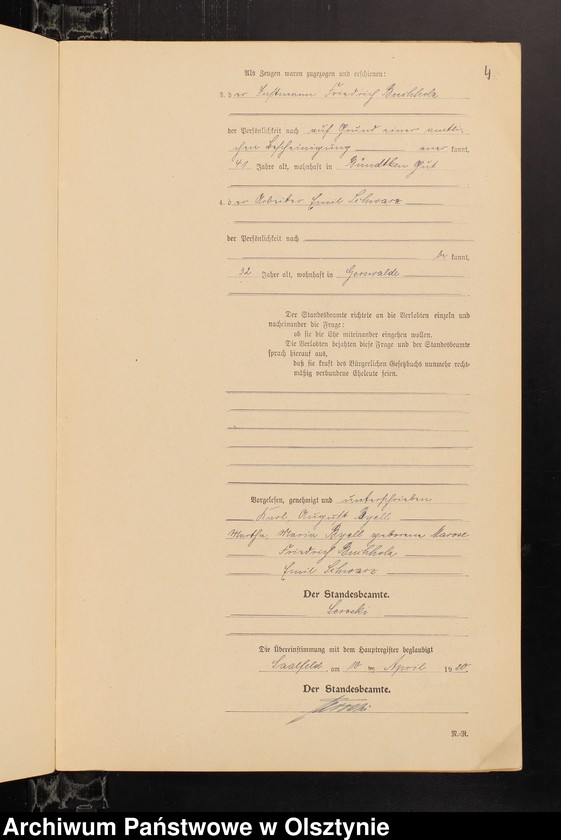 4
Als Zeugen waren zugezogen und erschienen:
3. der Instmann Friedrich Buchholz
der Persönlichkeit nach auf Grund einer amtli-
chen Bescheinigung aner kannt,
41 Jahre alt, wohnhaft in Gut
4. der Arbeiter Emil Schwarz
der Persönlichkeit nach
be kannt,
32 Jahre alt, wohnhaft in Gerswalde
Der Standesbeamte richtete an die Verlobten einzeln und
nacheinander die Frage:
ob sie die Ehe miteinander eingehen wollen.
Die Verlobten bejahten diese Frage und der Standesbeamte
sprach hierauf aus,
daß sie kraft des Bürgerlichen Gesetzbuchs nunmehr recht-
mäßig verbundene Eheleute seien.
Vorgelesen, genehmigt und unterschrieben
Karl August
Martha Maria geborene Marose
Friedrich Buchholz
Emil Schwarz
Der Standesbeamte.
Die Übereinstimmung mit dem Hauptregister beglaubigt
Saalfeld, am 10 ten April 19 20.
Der Standesbeamte.
N.-R.
Archiwum Państwowe w Olsztynie